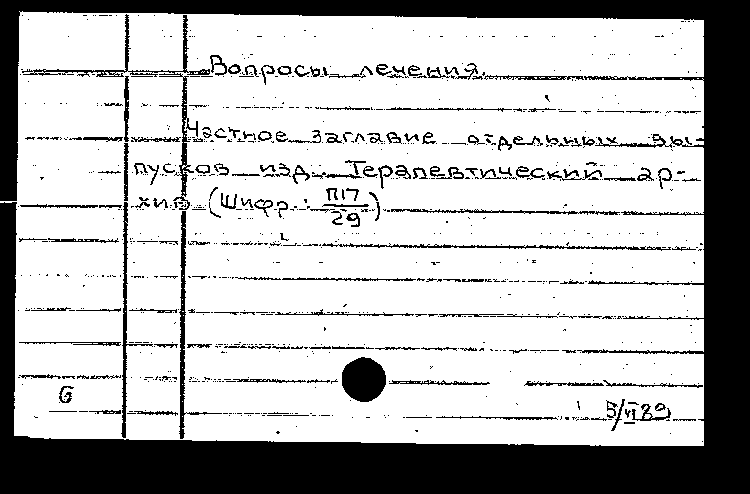 Вопросы лечения.
Частное заглавие отдельных вы-
пусков изд. Терапевтический ар-
хив (Шифр: П17/29)
6
5/VI 89